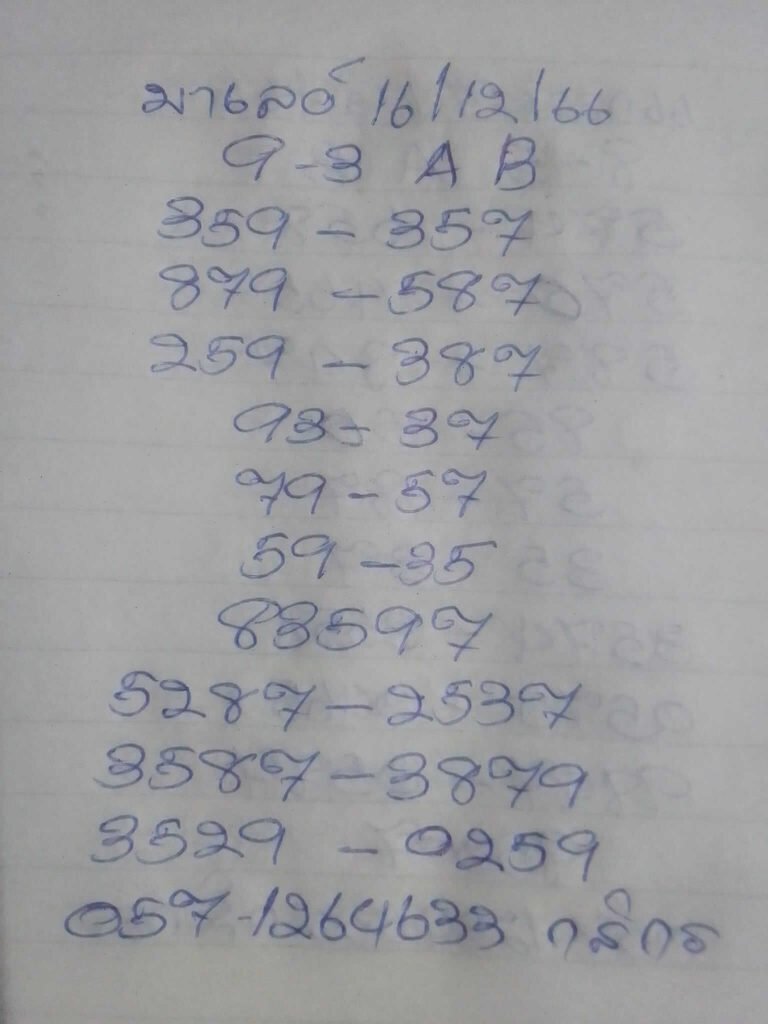 มาเลย์ 16/12/66
9-3 A B
359 - 357
879 - 587
259 - 387
93 - 37
79 - 57
59 - 35
83597
5287 - 2537
3587 - 3879
3529 - 0259
057-1264633 กสิกร